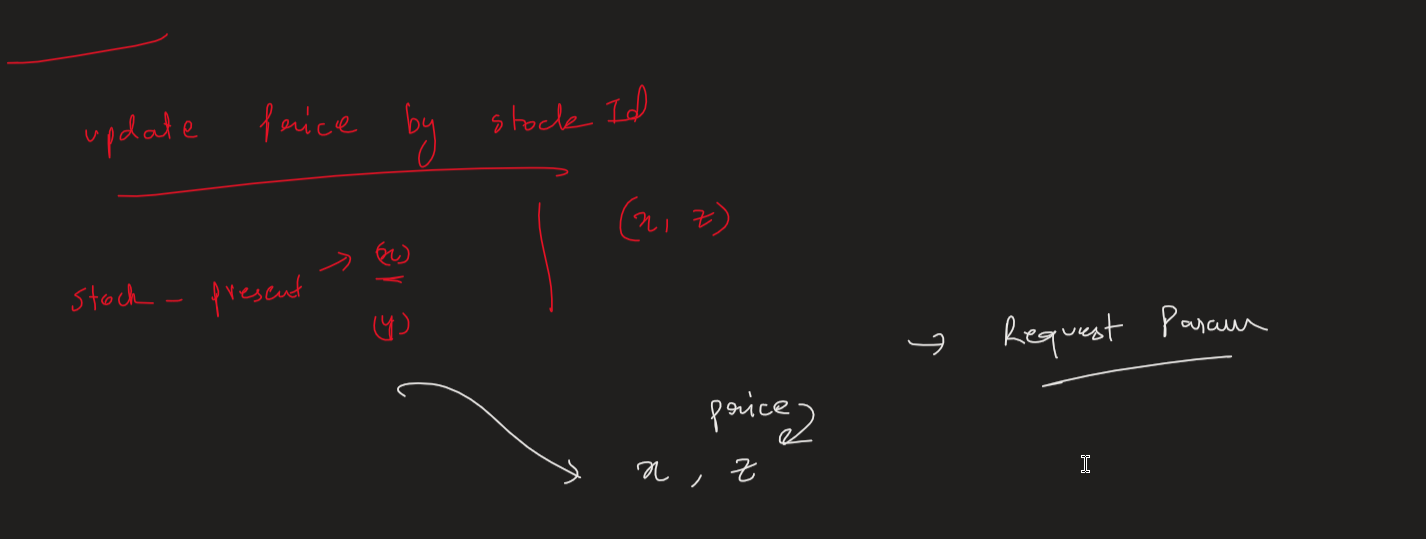 update price by stock Id
(x, z)
stock - present → (x)
(y)
→ Request Param
price
x , z